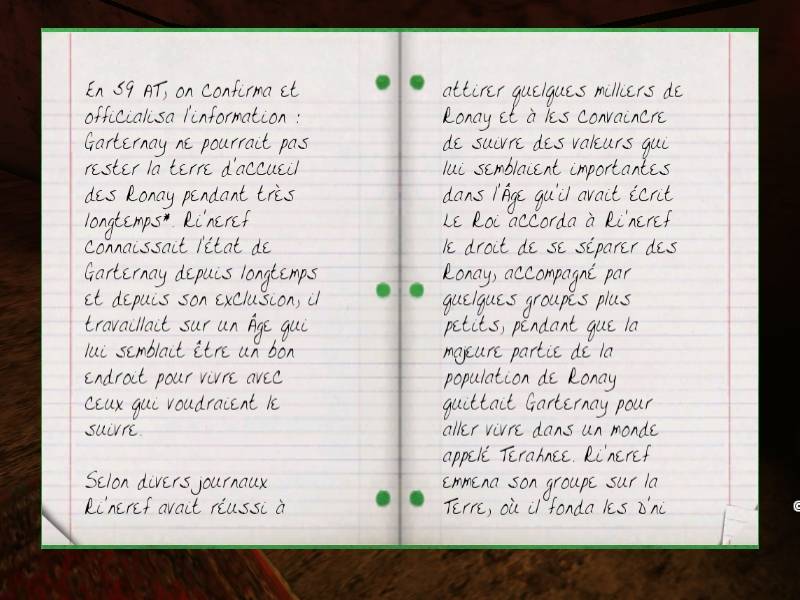 En 59 AT, on confirma et
officialisa l'information :
Garternay ne pourrait pas
rester la terre d'accueil
des Ronay pendant très
longtemps*. Ri'neref
connaissait l'état de
Garternay depuis longtemps
et depuis son exclusion, il
travaillait sur un Âge qui
lui semblait être un bon
endroit pour vivre avec
ceux qui voudraient le
suivre.
Selon divers journaux
Ri'neref avait réussi à
attirer quelques milliers de
Ronay et à les convaincre
de suivre des valeurs qui
lui semblaient importantes
dans l'Âge qu'il avait écrit
Le Roi accorda à Ri'neref
le droit de se séparer des
Ronay, accompagné par
quelques groupes plus
petits, pendant que la
majeure partie de la
population de Ronay
quittait Garternay pour
aller vivre dans un monde
appelé Terahnee. Ri'neref
emmena son groupe sur la
Terre, où il fonda les D'ni
©